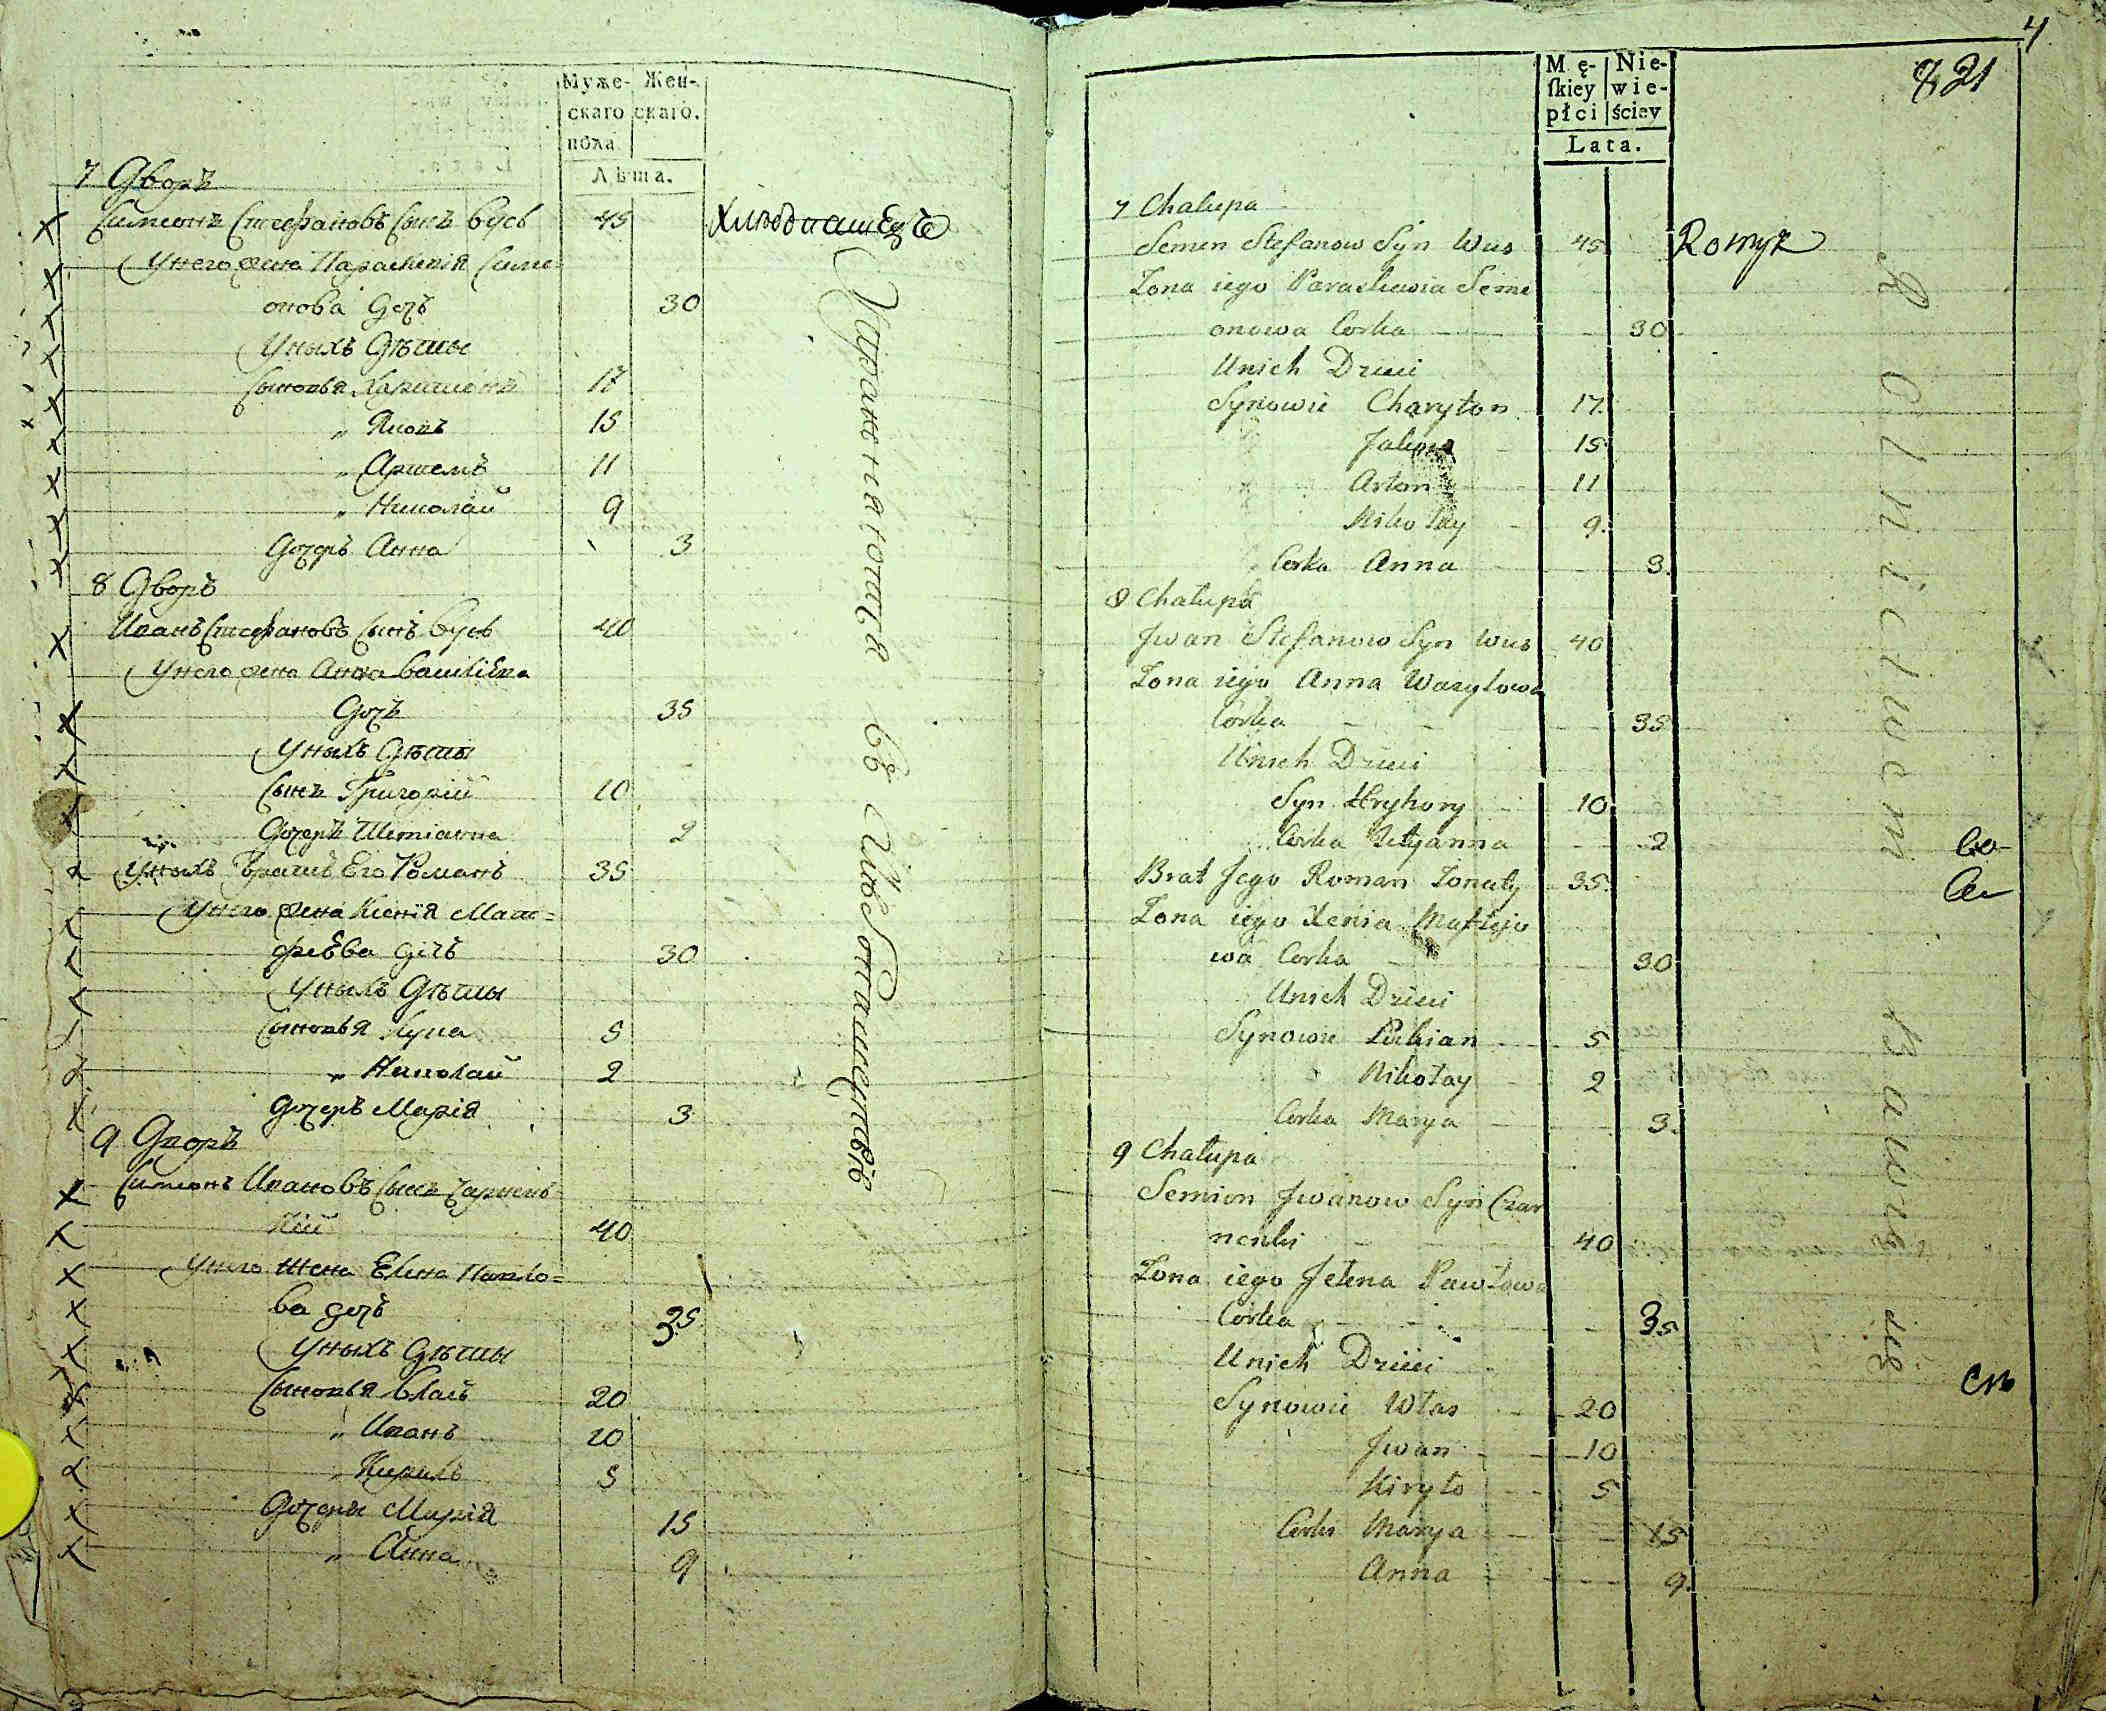 Муже- Жен-
скаго скаго.
пола
Лѣта.
7 Дворъ
Симеонъ Стефановъ сынъ Вусъ 45 Хлѣбопашецъ
У него жена Параскевія Симе=
онова дочь 30
У ныхъ дѣты
Сыновья Харитонъ 17
„ Яковъ 15
„ Артемъ 11
„ Николай 9
Дочерь Анна 3
8 Дворъ
Иванъ Стефановъ сынъ Вусъ 40
У него жена Анна Васильева
дочь 35
У ныхъ дѣты
Сынъ Григорій 10
Дочерь 2
У ныхъ братъ его Романъ 35
У него жена Ксенія Мат=
фѣева дочь 30
У ныхъ дѣты
Сыновья 5
„ Николай 2
Дочерь Марія 3
9 Дворъ
Симеонъ Ивановъ сынъ Чарнень
кій 40
У него жена Елена Павло=
ва дочь 35
У ныхъ дѣты
Сыновья Власъ 20
„ Иванъ 10
„ Кирилъ 5
Дочеры Марія 15
„ Анна 9
Упражняются въ хлѣбопашествѣ
4
821
Mę- Nie-
ſkiey wie-
płci ściey
Lata.
7 Chałupa
Semen Stefanow Syn Wus 45 Romyz
Zona iego Paraskewia Seme
onowa Corka 30
Unich Dzieci
Synowie Charyton 17
Jakow 15
Artem 11
Mikołay 9
Corka Anna 3
8 Chałupa
Jwan Stefanow Syn Wus 40
Zona iego Anna Wasylowa
Corka 35
Unich Dzieci
Syn Hryhory 10
Corka Tetyanna 2
Brat Jego Roman Zonaty 35
Zona iego Xenia Matfijo
wa Corka 30
Unich Dzieci
Synowie Łukian 5
Mikołay 2
Corka Marya 3
9 Chałupa
Semion Jwanow Syn Czar
nenki 40
Zona iego Jelena Pawłowa
Corka 35
Unich Dzieci
Synowie Włas 20
Jwan 10
Kiryło 5
Corki Marya 15
Anna 9
Rolnictwem Bawią się